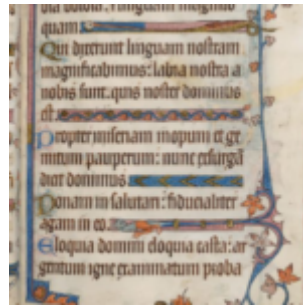 dia dolosa: linguam magnilo
quam.
Qui dixerunt linguam nostram
magnificabimus: labia nostra a
nobis sunt. quis noster dominus
est.
Propter miseriam inopum et ge
mitum pauperum: nunc exsurgam
dicit dominus.
Ponam in salutari: fiducialiter
agam in eo.
Eloquia domini eloquia casta: ar
gentum igne examinatum proba